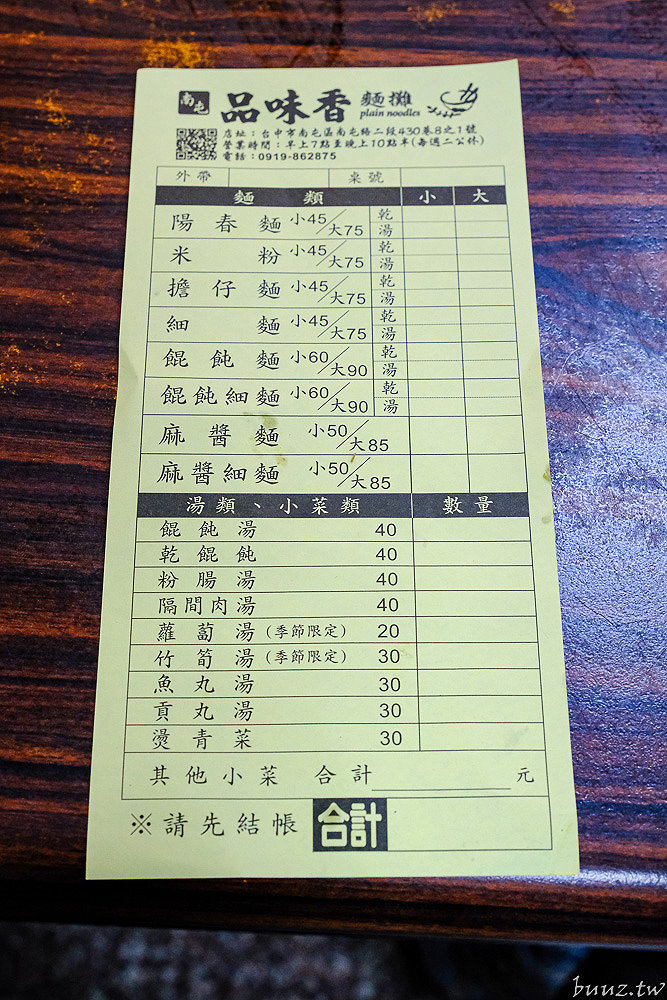 南屯 品味香 麵攤
plain noodles
店址：台中市南屯區南屯路二段430巷8之1號
營業時間：早上7點至晚上10點半(每週二公休)
電話：0919-862875
外帶 桌號
麵類 小 大
陽春麵 小45/大75 乾 湯
米粉 小45/大75 乾 湯
擔仔麵 小45/大75 乾 湯
細麵 小45/大75 乾 湯
餛飩麵 小60/大90 乾 湯
餛飩細麵 小60/大90 乾 湯
麻醬麵 小50/大85
麻醬細麵 小50/大85
湯類、小菜類 數量
餛飩湯 40
乾餛飩 40
粉腸湯 40
隔間肉湯 40
蘿蔔湯(季節限定) 20
竹筍湯(季節限定) 30
魚丸湯 30
貢丸湯 30
燙青菜 30
其他小菜 合計 元
※請先結帳 合計
buuz.tw